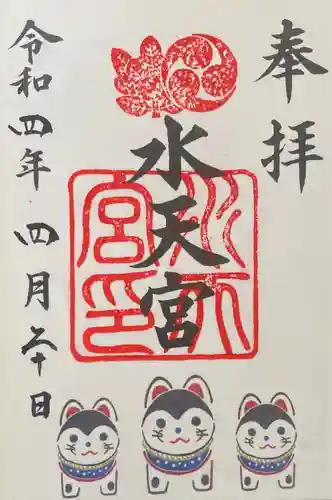 奉拝
水天宮
水天宮印
令和四年四月二十日